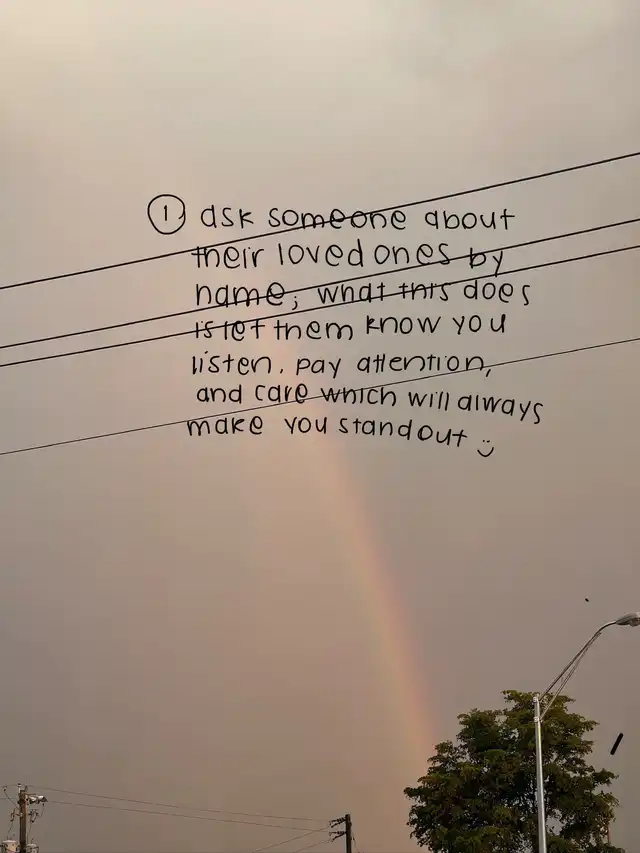 1 ask someone about
their loved ones by
name; what this does
is let them know you
listen, pay attention,
and care which will always
make you stand out